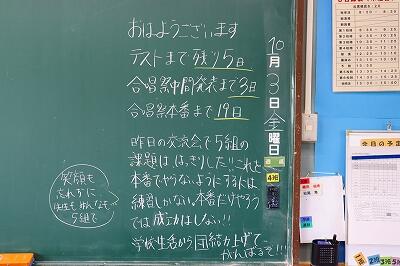 おはようございます
テストまで残り5日
合唱祭中間発表まで3日
合唱祭本番まで19日
昨日の交流会で5組の
課題ははっきりした!!これを
本番でやらないようにするには
練習しかない。本番だけやろう
では成功はしない!!
学校生活から団結力上げて
がんばるぞ!!!
笑顔も
忘れずに
5組で
10月3日金曜日
4班
今日の予定